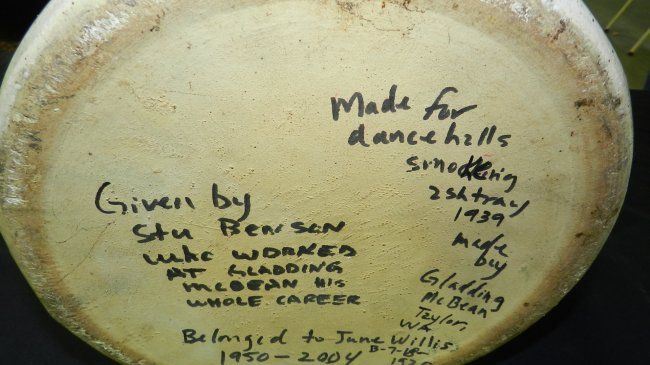 Made for
dancehalls
smoking
ashtray
1939
made
by
Gladding
McBean
Taylor,
WA
Given by
Stu Bensen
who WORKED
AT GLADDING
McBEAN His
WHOLE CAREER
Belonged to June Willis.
1950-2004